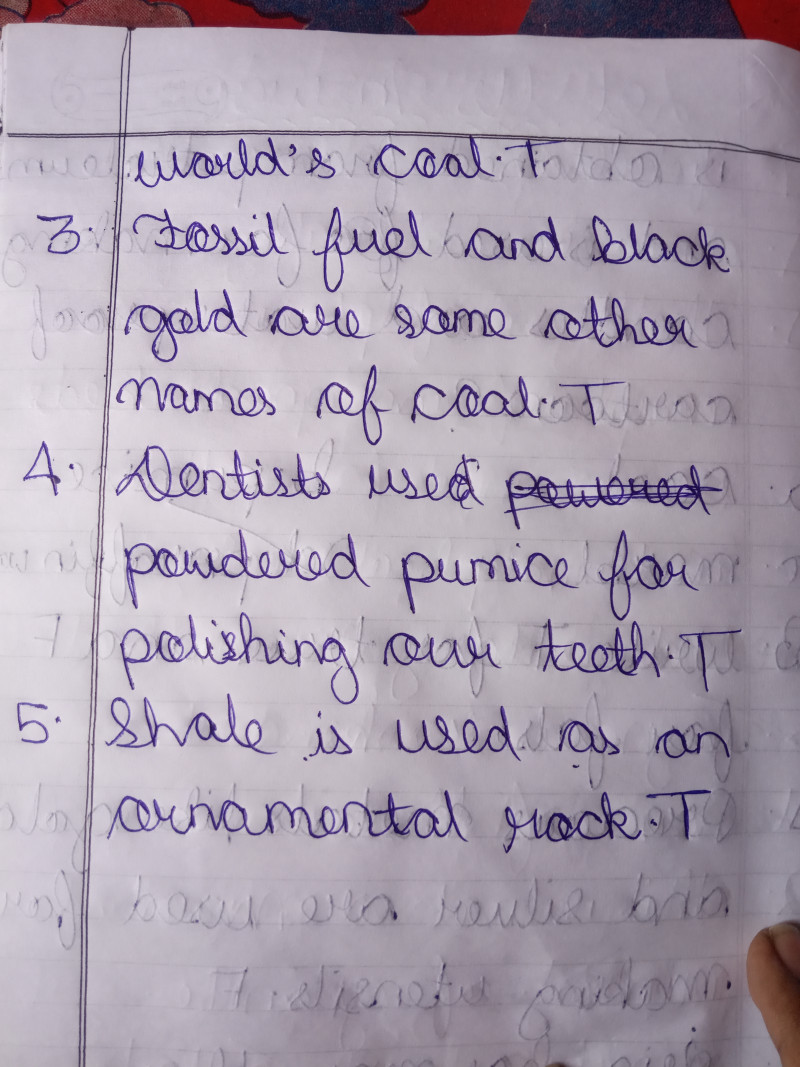 world's coal. T
3. Fossil fuel and black
gold are some other
names of coal. T
4. Dentists used powered
powdered pumice for
polishing our teeth. T
5. Shale is used as an
ornamental rock. T